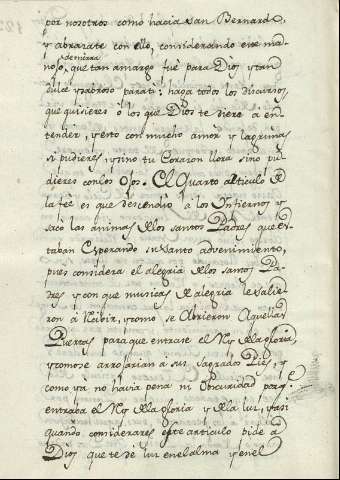 por nosotros como hacia san Bernardo,
y abrazate con ello, considerando este ma-
de mirra
nojo, que tan amargo fue para Dios y tan
dulce y sabroso para ti: haga todos los discursos,
que quisieres ó los que Dios te diere a en-
tender, y esto con mucho amor y lagrimas
si pudieres, y sino tu Corazon llora sino pu-
dieres con los Ojos. El Quarto articulo de
la fee es que descendio a los Infiernos y
saco las animas de los santos Padres que es-
taban Esperando su santo advenimiento,
pues considera el alegria de los santos Pa-
dres y con que musicas de alegria le salie-
ron á recivir, y como se Abrieron Aquellas
Puertas para que entrase el Rey de la gloria,
y como se arrojarian á sus sagrados Pies, y
como ya no havia pena ni Obcuridad porq.
entraba el Rey de la gloria y de la luz, y asi
quando considerares este articulo pide á
Dios que te dé luz en el alma y en el